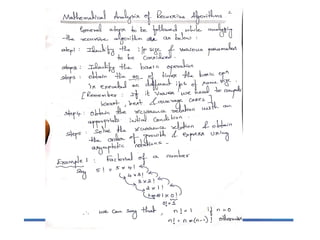 Mathematical Analysis of Recursive Algorithms :-
General steps to be followed while analyzing
the recursive algorithm are as below :
step1: Identify the i/p size & various parameters
to be considered.
step2: Identify the basic operation
step3: Obtain the no of times the basic opn
is executed on different i/ps of same size.
[Remember: If it varies we need to compute
worst, best & average cases]
step4: Obtain the recurrence relation with an
appropriate initial condition.
step5: Solve the recurrence relation & obtain
the order of growth & express using
asymptotic notations.
Example 1 : Factorial of a number
Say 5! = 5 * 4!
4 * 3!
3 * 2!
2 * 1!
1 * 0!
0! = 1
∴ we can say that, n! = 1 if n=0
n! = n*(n-1)! otherwise